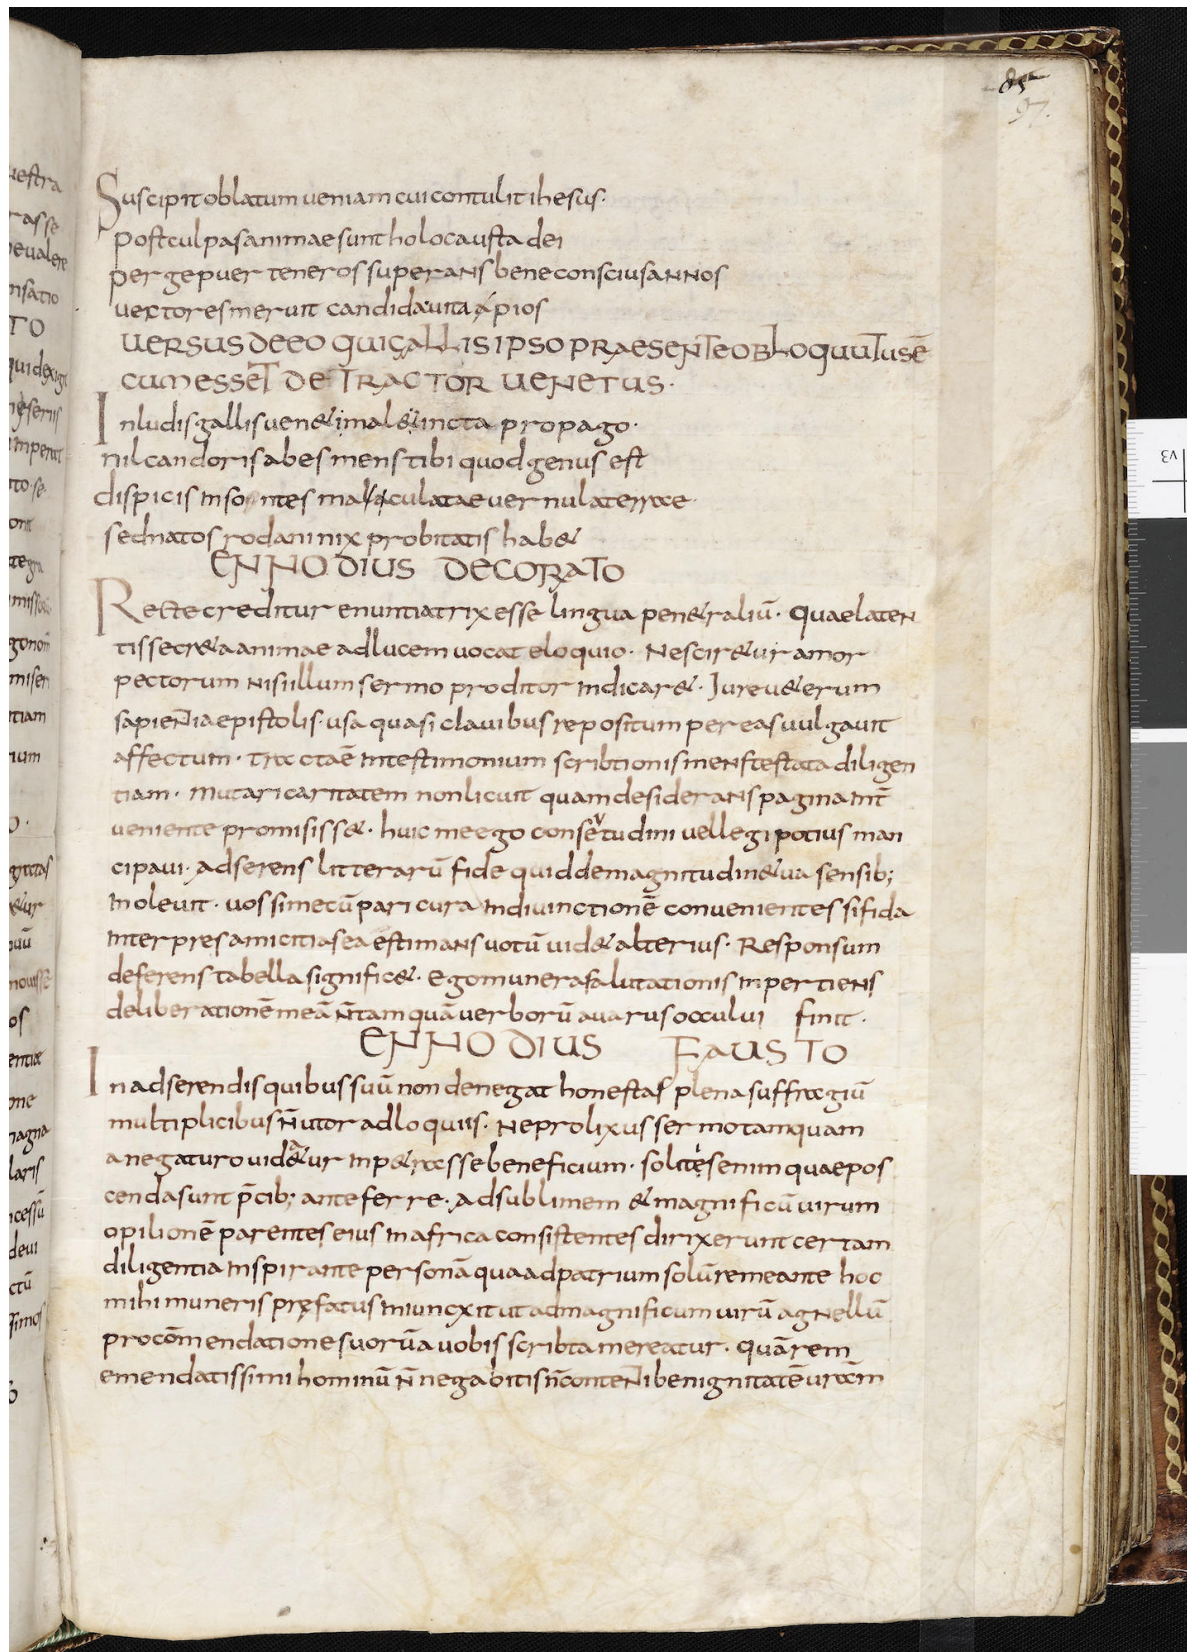 85
97.
Suscipit oblatum ueniam cui contulit ihesus·
post culpas animae sunt holocausta dei
perge puer teneros superans bene conscius annos
uectores meruit candida uita pios
UERSUS DE EO QUI GALLIS IPSO PRAESENTE OBLOQUUTUS Ē
CUM ESSET DETRACTOR UENETUS·
Inludis gallis uen& imal& incta propago·
nil candoris abes mens tibi quod genus est
dispicis insontes maculatae uernula terrae·
sed natos rodani nix probitatis hab&
ENNODIUS DECORATO
Recte creditur enuntiatrix esse lingua pen&raliū· Quae laten
tis secr&a animae ad lucem uocat eloquio· Nescir&ur amor
pectorum nisi illum sermo proditor indicar&· Iure u&erum
sapientia epistolis· usa quasi clauibus repositum per eas uulgauit
affectum· tractaē in testimonium scribtionis mens testata diligen
tiam· mutari caritatem non licuit quam desiderans pagina int̄
ueniente promisiss&· huic me ego consetudini uel legi potius man
cipaui· adserens litterarū fide quid de magnitudin& ua sensib;
inoleuit· uos si mecū pari cura in diuinctionē conuenientes si fida
interpres amicitias ea estimans uotū uid& alterius· Responsum
deferens tabella signific&· Ego munera salutationis inpertiens
deliberationē meā n̄ tam quā uerborū auarus occului finit·
ENNODIUS FAUSTO
In adserendis quibus suū non denegat honestas plena suffragiū
multiplicibus n̄ utor adloquiis· Ne prolixus sermo tamquam
a negaturo uid&ur inp&rasse beneficium· solites enim quae pos
cenda sunt p̄cib; anteferre· ad sublimem & magnificū uirum
opilionē parentes eius in africa consistentes dirixerunt certam
diligentia inspirante personā qua ad patrium solū remeante hoc
mihi muneris pręfatus iniuncxit ut ad magnificum uirū agnellū
pro cōmendatione suorū a uobis scribta mereatur· quā rem
emendatissimi hominū n̄ negabitis n̄ contenti benignitatē urā̄m